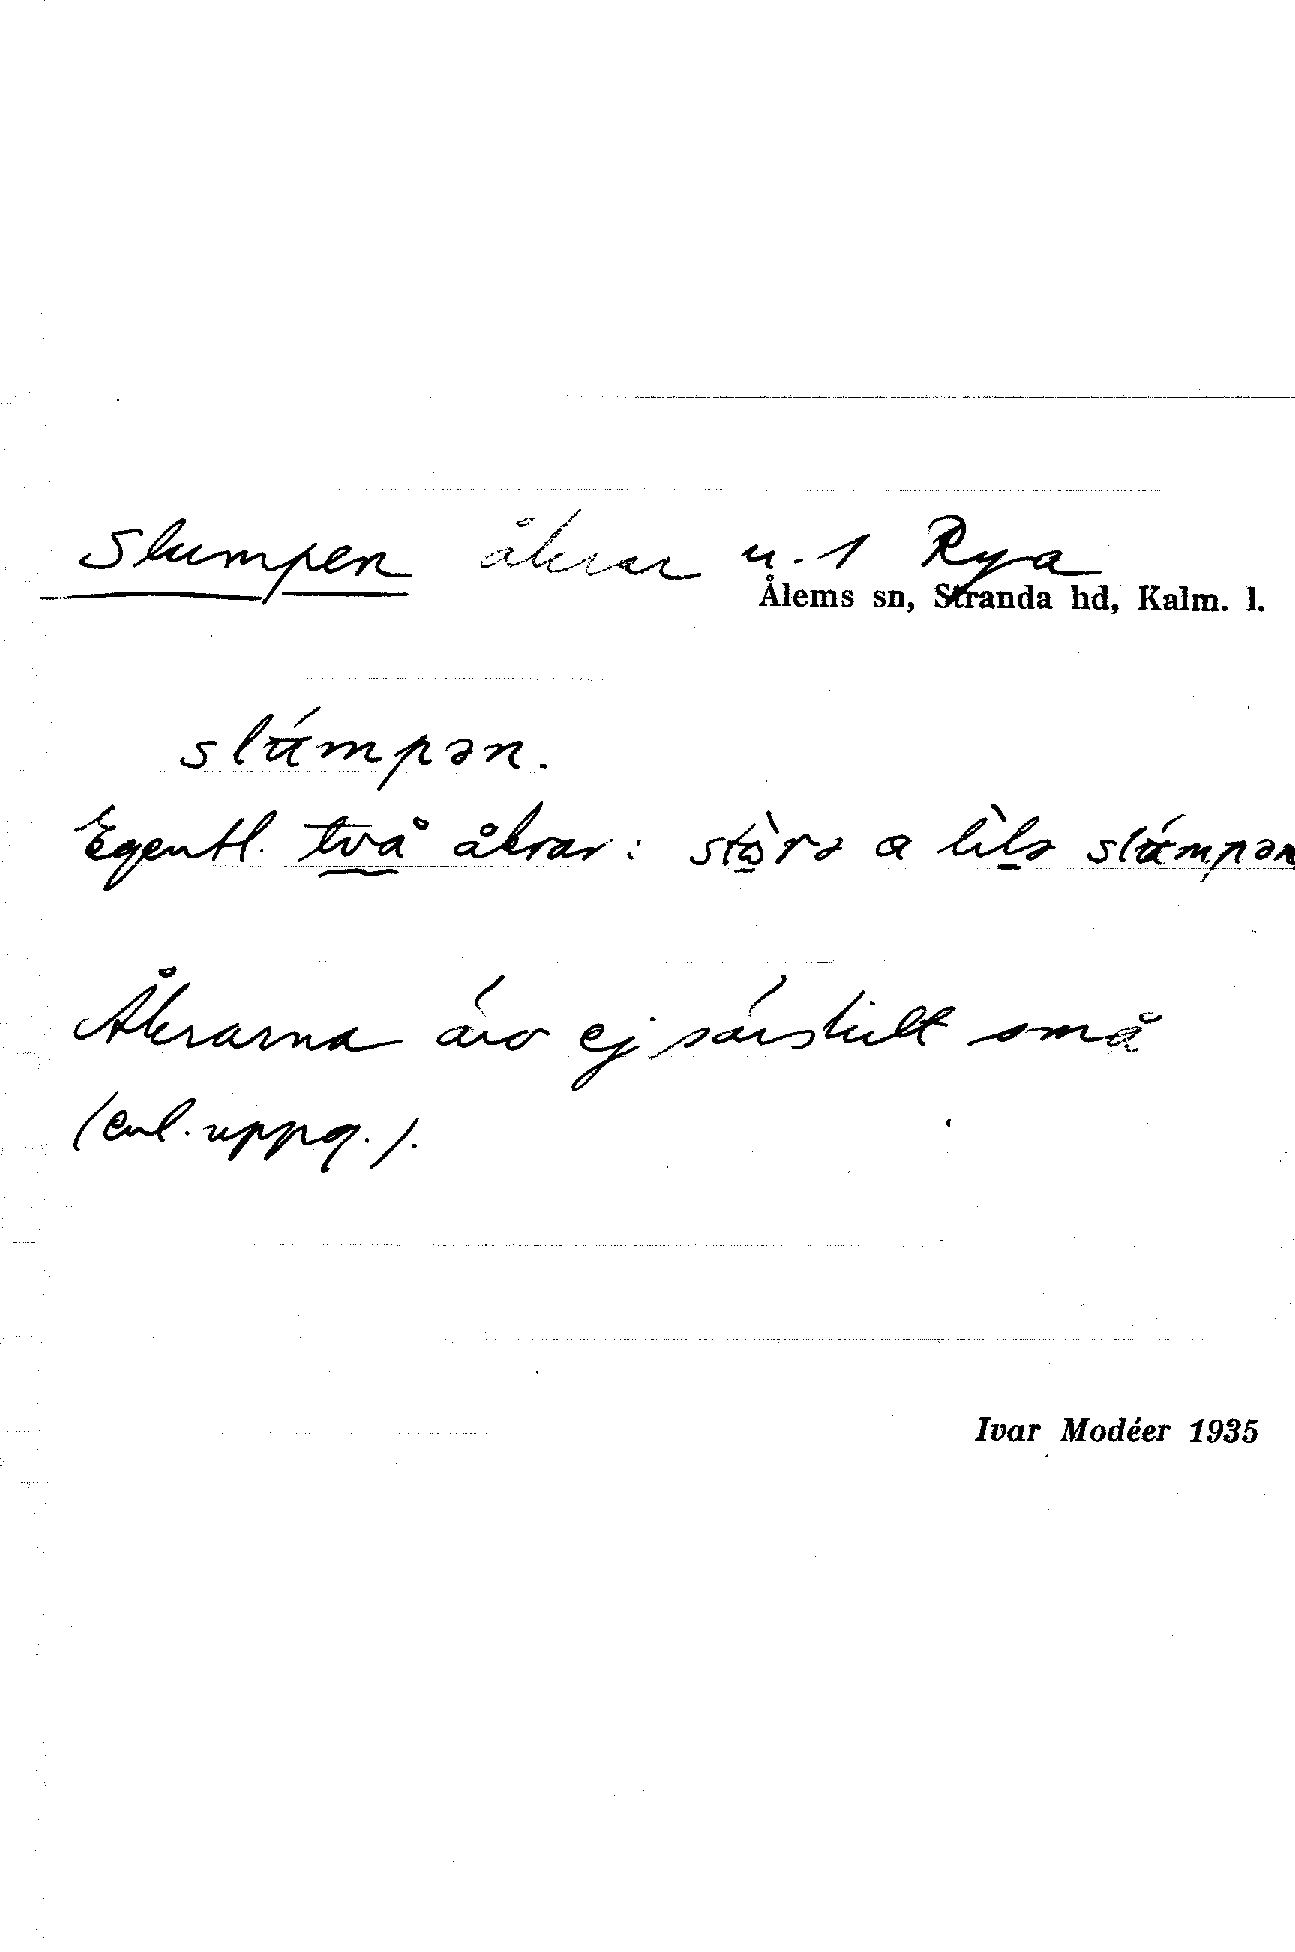 Slumpen åkrar u. 1 Rya
Ålems sn, Stranda hd, Kalm. l.
slúmpən.
Egentl. två åkrar: stòrə a lìlə slúmpən
Åkrarna äro ej särskilt små
(enl. uppg.).
Ivar Modéer 1935